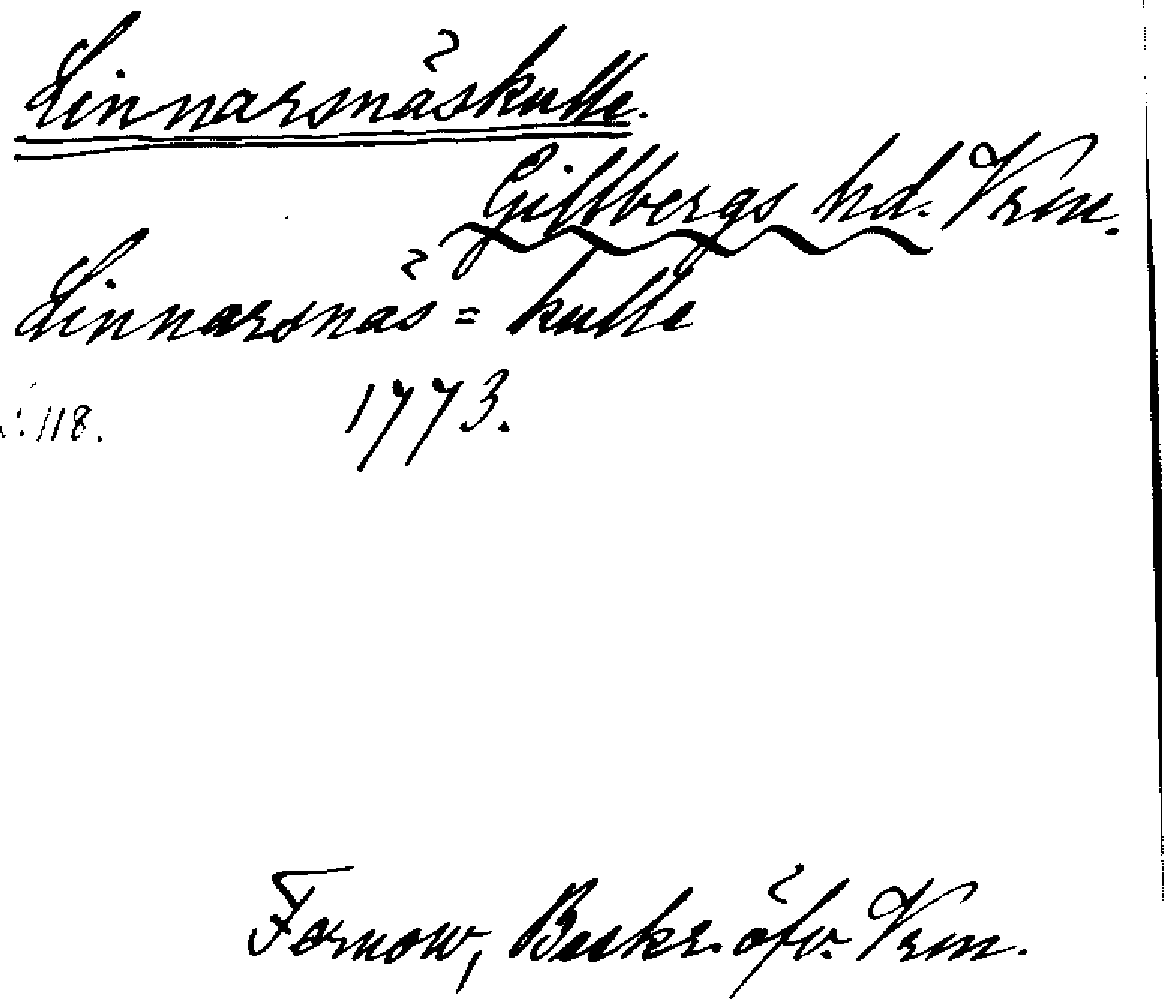 Linnarsnäskulle.
Gillbergs hd. Vrm.
Linnarsnäs = kulle
s. 118. 1773.
Fernow, Beskr. öfv. Vrm.